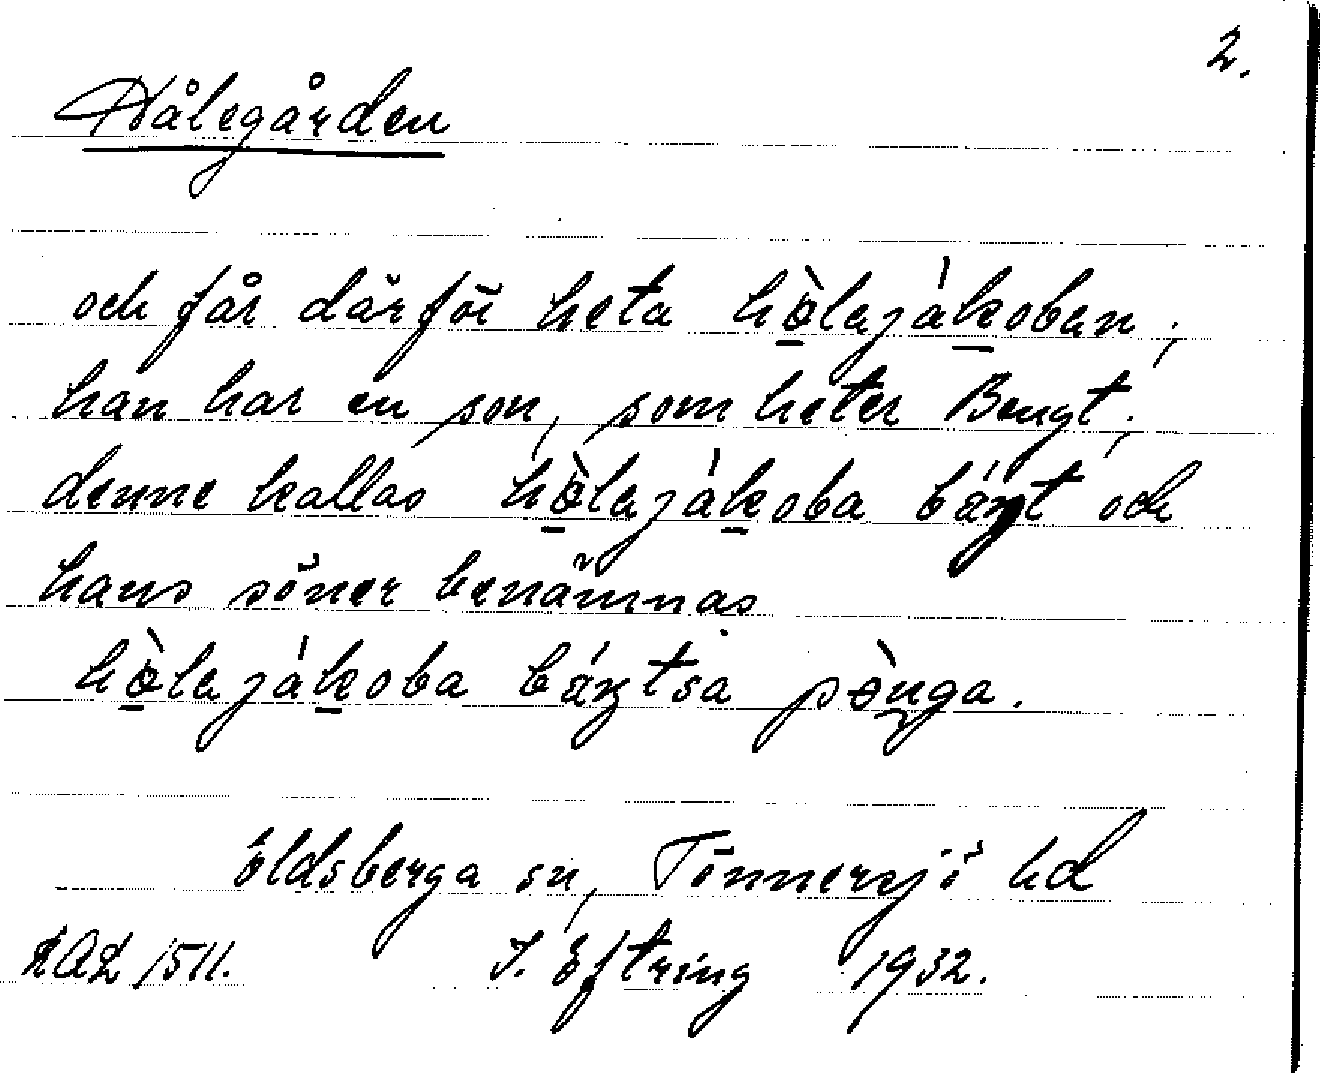 2.
Hålegården
och får därför heta hòlajákoban;
han har en son, som heter Bengt;
denne kallas hòlajákoba báŋt och
hans söner benämnas
hòlajákoba báŋtsa pòŋga.
Eldsberga sn, Tönnersjö hd
1511. J. Eftring 1932.